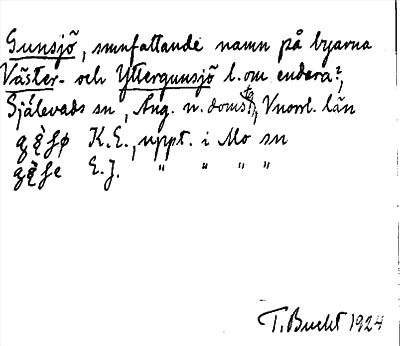 Gunsjö, smnfattande namn på byarna
Väster- och Yttergunsjö l. om endera?,
Själevads sn, Ång. n. doms., Vnorrl. län
K.E., uppt. i Mo sn
E.J. " " " "
T. Bucht 1924